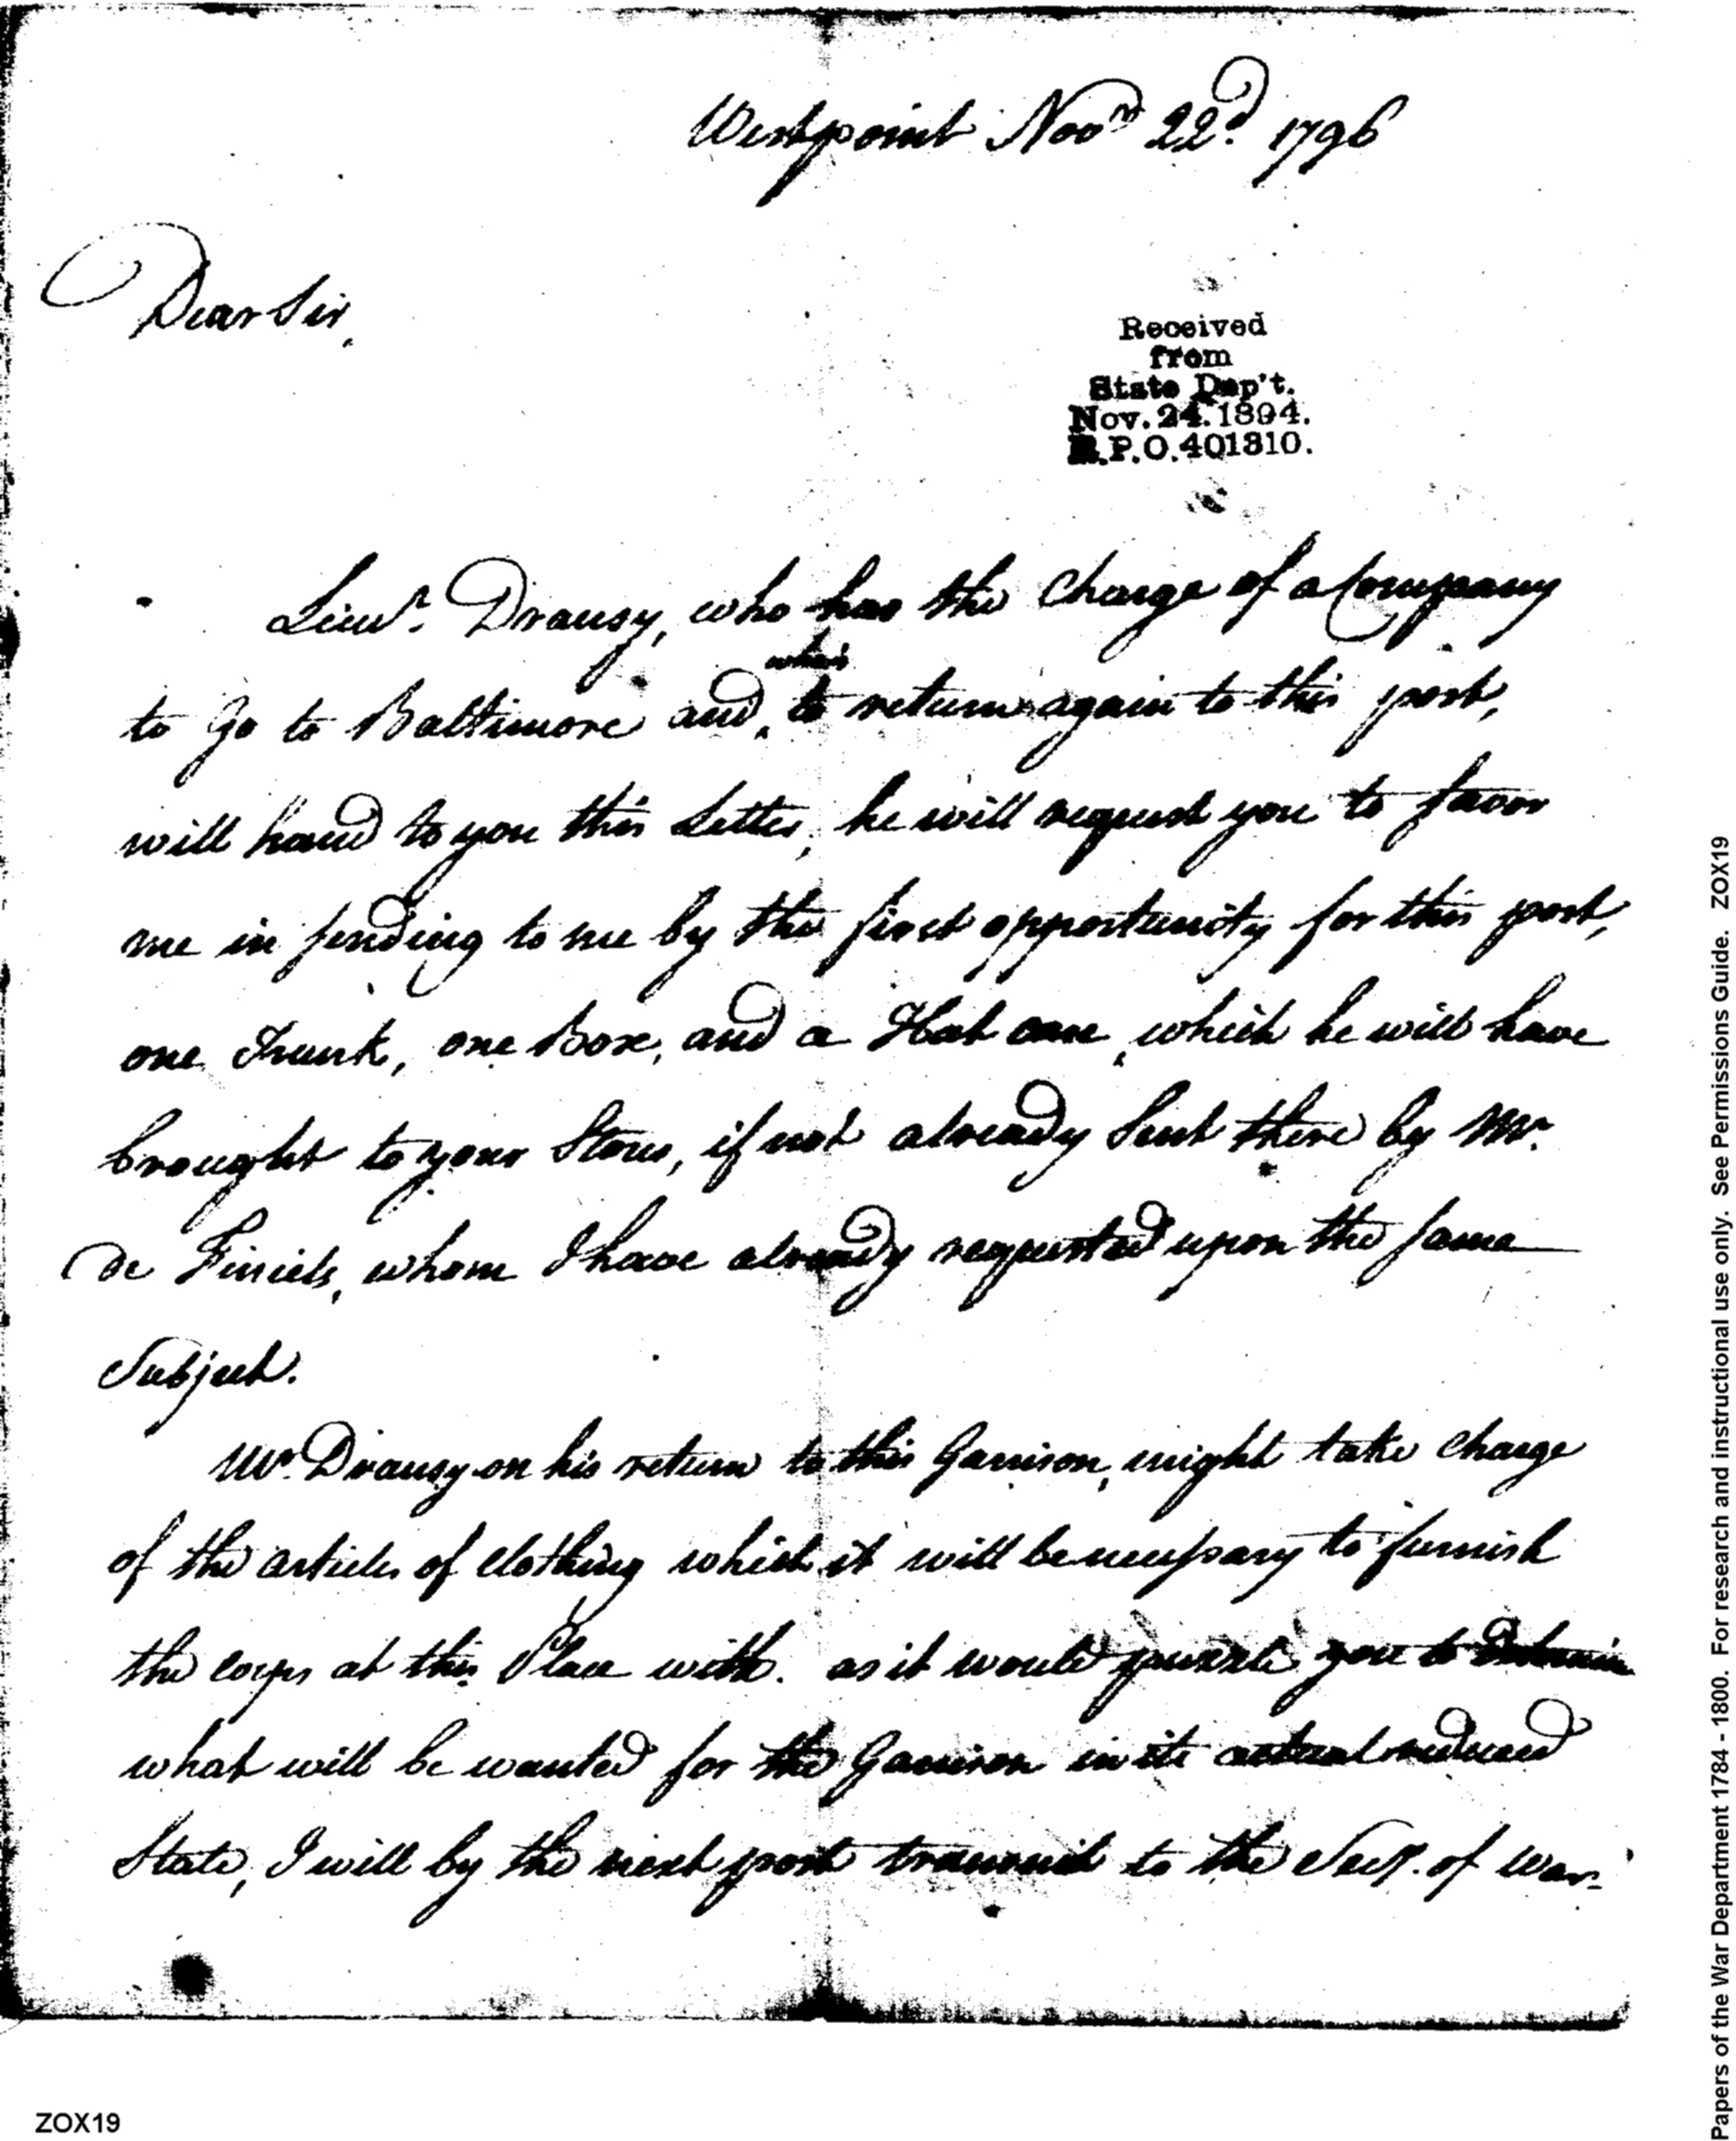 Westpoint Nov.r 22d. 1796
Dear Sir,
Received
from
State Dep't.
Nov. 24. 1894.
R.P.O. 401310.
Lieut. Dransy, who has the charge of a Company
who is
to go to Baltimore and, to return again to this post,
will hand to you this Letter, he will request you to favor
me in sending to me by the first opportunity for this post,
one Trunk, one Box, and a Hat case, which he will have
brought to your Store, if not already Sent there by Mr.
de Finiels, whom I have already requested upon the same
Subject.
Mr. Dransy on his return to this Garrison, might take charge
of the articles of clothing which it will be necessary to furnish
the corps at this Place with. as it would puzzle you to determine
what will be wanted for the Garrison in its actual reduced
State, I will by the next post transmit to the Secy. of War
ZOX19
Papers of the War Department 1784 - 1800. For research and instructional use only. See Permissions Guide. ZOX19